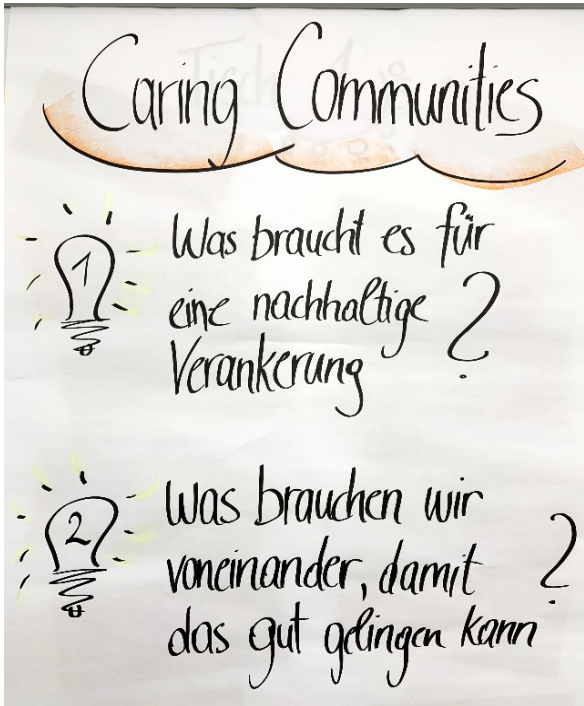 Caring Communities
1
Was braucht es für
eine nachhaltige
Verankerung ?
2
Was brauchen wir
voneinander, damit
das gut gelingen kann ?